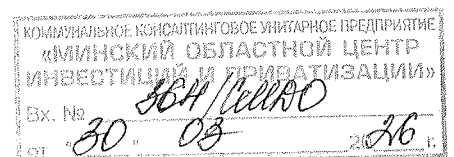 КОММУНАЛЬНОЕ КОНСАЛТИНГОВОЕ УНИТАРНОЕ ПРЕДПРИЯТИЕ
«МИНСКИЙ ОБЛАСТНОЙ ЦЕНТР
ИНВЕСТИЦИЙ И ПРИВАТИЗАЦИИ»
Вх. №
от "30" 03 2026 г.